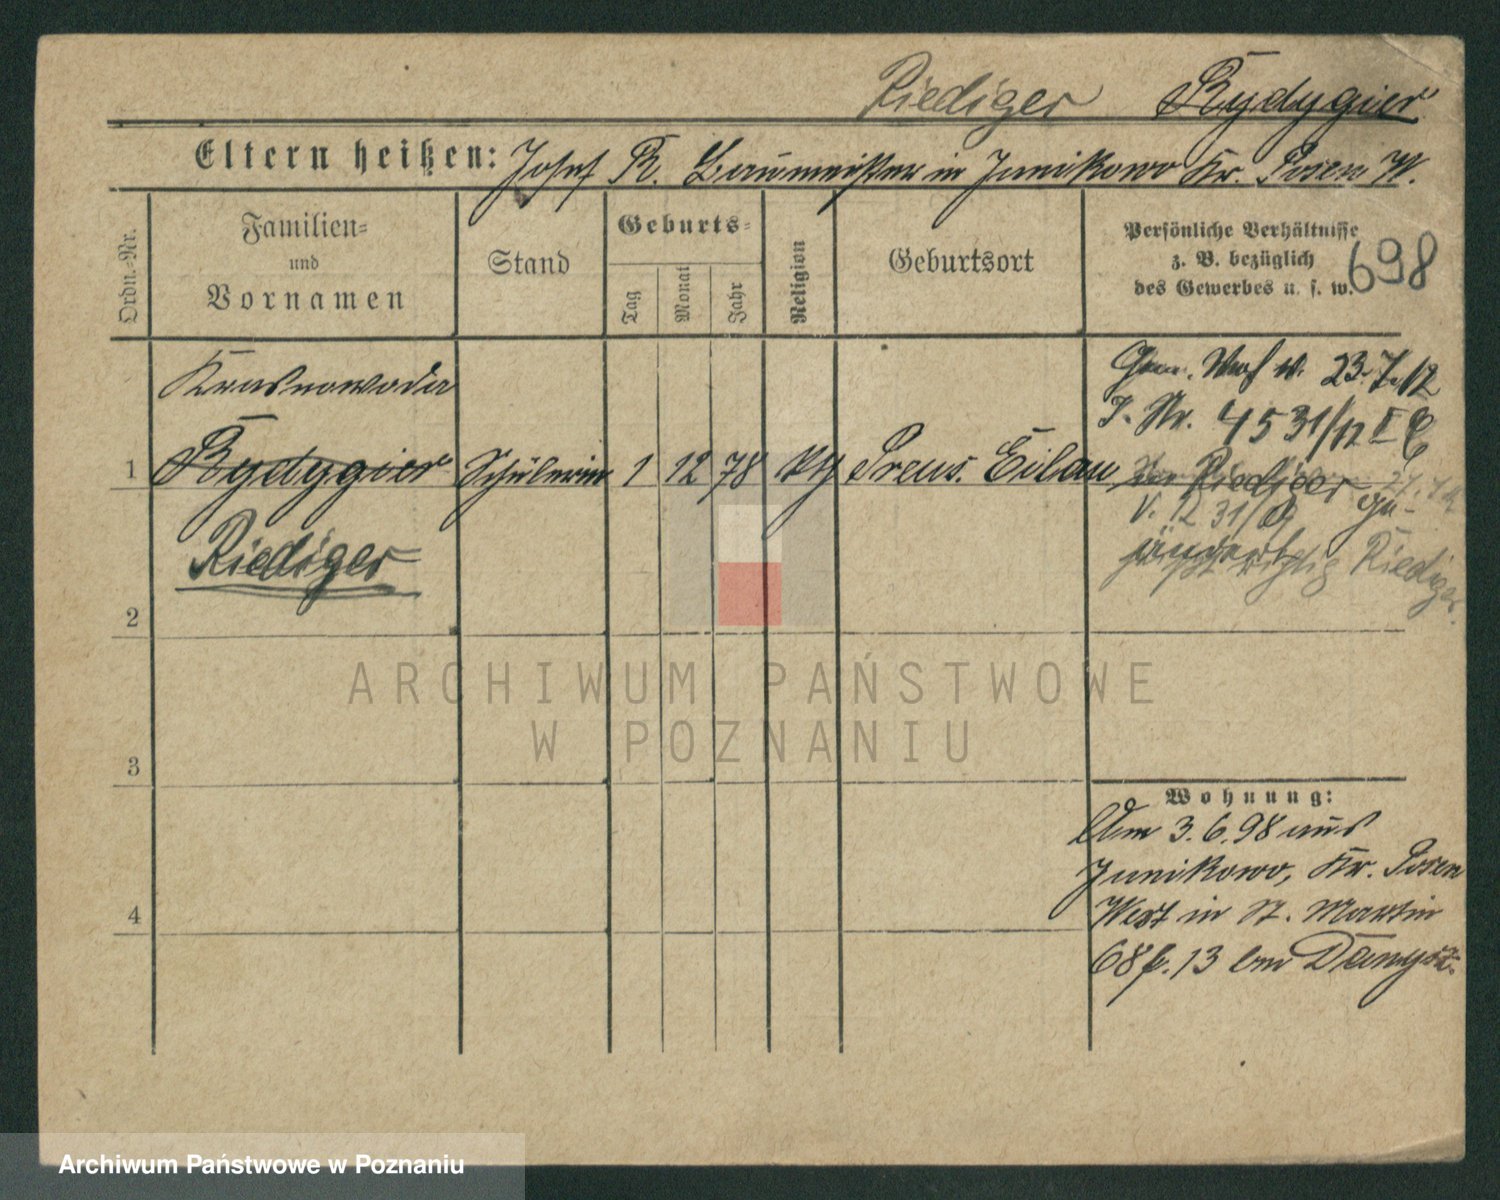 Riediger Rydygier
Eltern heißen: Josef R. Baumeister in Junikowo Kr. Posen W.
Ordn.-Nr.
Familien-
und
Vornamen
Stand
Geburts-
Tag
Monat
Jahr
Religion
Geburtsort
Persönliche Verhältnisse
z. B. bezüglich
des Gewerbes u. s. w.
698
1
Rydygier
Riediger
Schülerin
1
12
78
kth
Preus. Eilau
23.7.12
J. Nr. 4531/12 I C
Riediger
Riediger
2
3
4
Wohnung:
Am 3.6.98 aus
Junikowo, Kr. Posen
West in St. Martin
68 p. 13 bei
ARCHIWUM PAŃSTWOWE
W POZNANIU
Archiwum Państwowe w Poznaniu